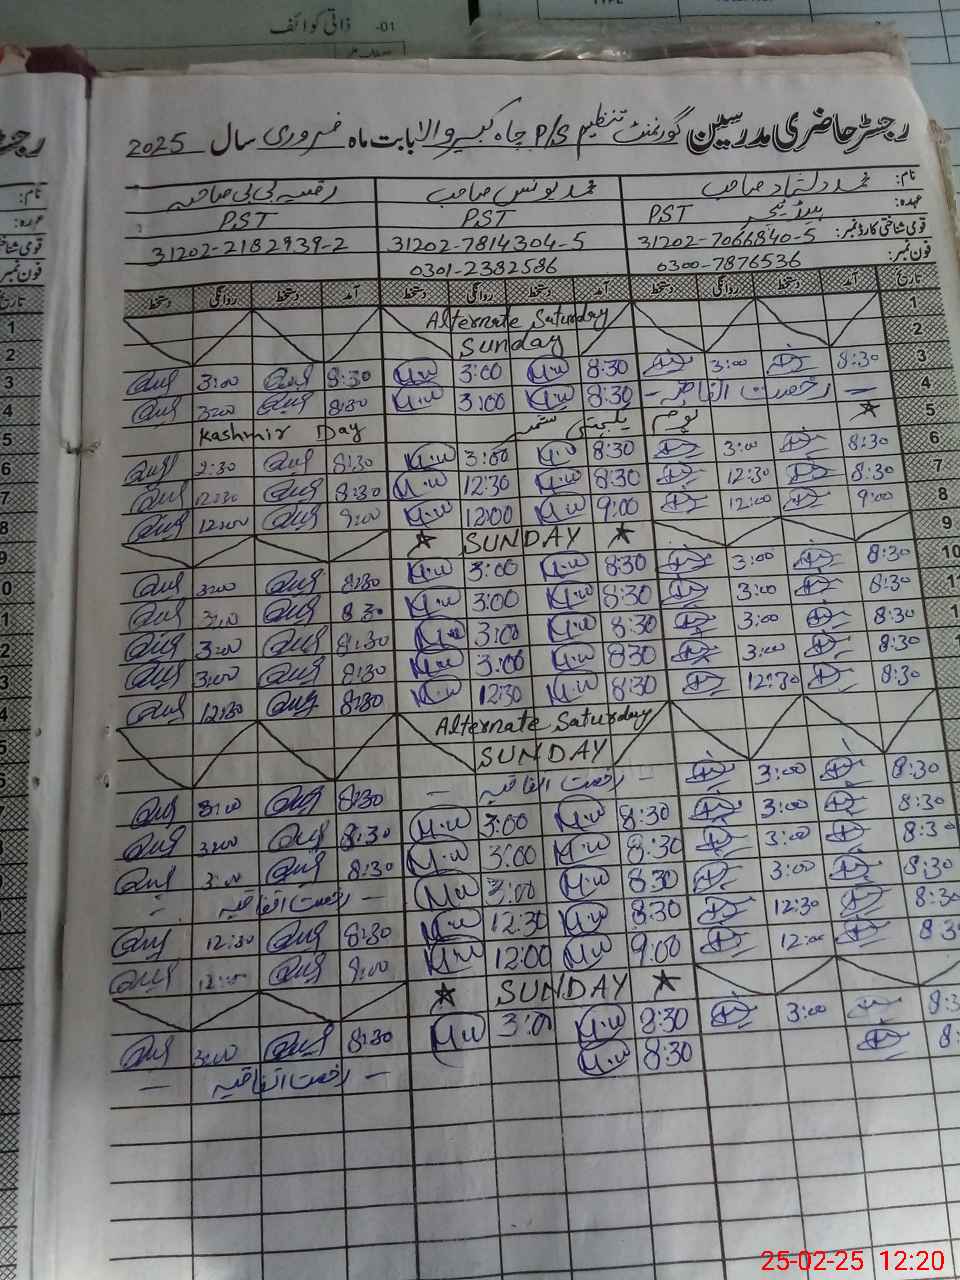 01- ذاتی کوائف
رجسٹر حاضری مدرسین گورنمنٹ تنظیم P/S چاہ کبیر والا بابت ماہ فروری سال 2025
نام: محمد دلشاد صاحب محمد یونس صاحب رقیہ بی بی صاحبہ
عہدہ: ہیڈ ٹیچر PST PST PST
قومی شناختی کارڈ نمبر: 31202-7066840-5 31202-7814304-5 31202-2182939-2
فون نمبر: 0300-7876536 0301-2382586
تاریخ آمد دستخط روانگی دستخط آمد دستخط روانگی دستخط آمد دستخط روانگی دستخط
1 Alternate Saturday
2 Sunday
3 8:30 3:00 8:30 M.w 3:00 M.w 8:30 3:00
4 — رخصت اتفاقیہ — 8:30 M.w 3:00 M.w 8:30 3:00
5 ★ یوم یکجہتی کشمیر Kashmir Day
6 8:30 3:00 8:30 M.w 3:00 M.w 8:30 2:30
7 8:30 12:30 8:30 M.w 12:30 M.w 8:30 12:30
8 9:00 12:00 9:00 M.w 12:00 M.w 9:00 12:00
9 ★ SUNDAY ★
10 8:30 3:00 8:30 M.w 3:00 M.w 8:30 3:00
8:30 3:00 8:30 M.w 3:00 M.w 8:30 3:00
8:30 3:00 8:30 M.w 3:00 M.w 8:30 3:00
8:30 3:00 8:30 M.w 3:00 M.w 8:30 3:00
8:30 12:30 8:30 M.w 12:30 M.w 8:30 12:30
Alternate Saturday
SUNDAY
8:30 3:00 رخصت اتفاقیہ — 8:30 3:00
8:30 3:00 8:30 M.w 3:00 M.w 8:30 3:00
8:30 3:00 8:30 M.w 3:00 M.w 8:30 3:00
8:30 3:00 8:30 M.w 3:00 M.w — رخصت اتفاقیہ —
8:30 12:30 8:30 M.w 12:30 M.w 8:30 12:30
8:3 12:00 9:00 M.w 12:00 M.w 9:00 12:00
★ SUNDAY ★
8:3 3:00 8:30 M.w 3:00 M.w 8:30 3:00
8: 8:30 M.w — رخصت اتفاقیہ —
25-02-25 12:20